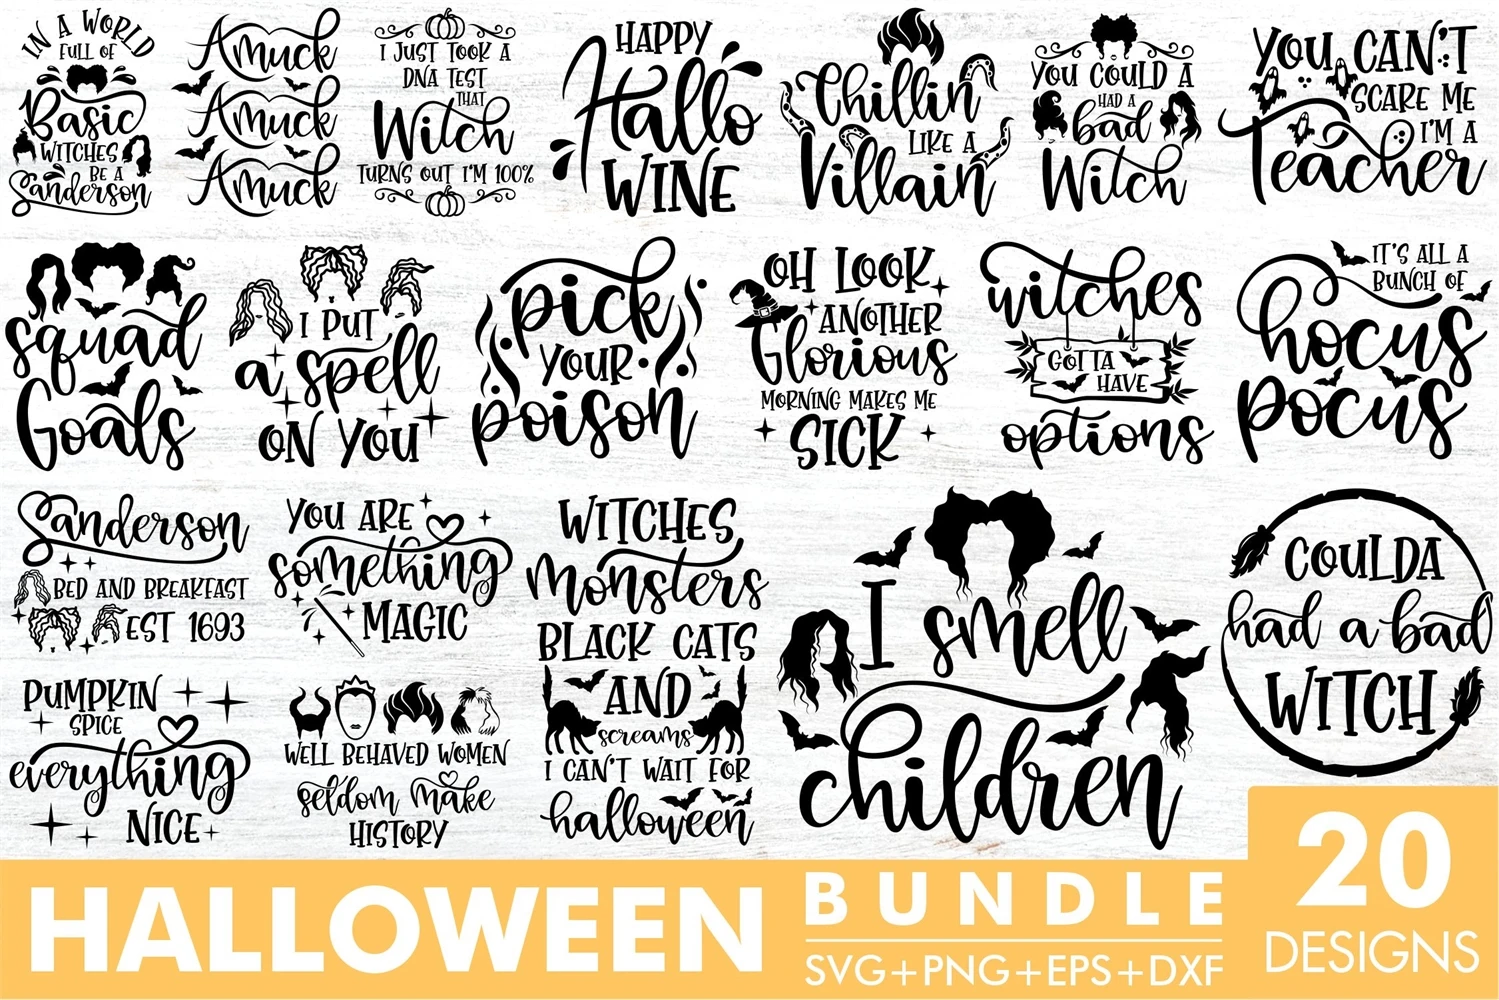 IN A WORLD
FULL OF
Basic
WITCHES
BE A
Sanderson
Amuck
Amuck
Amuck
I JUST TOOK A
DNA TEST
THAT
Witch
TURNS OUT I'M 100%
HAPPY
Hallo
WINE
Chillin
LIKE A
Villain
YOU COULD A
HAD A
bad
Witch
YOU CAN'T
SCARE ME
I'M A
Teacher
squad
Goals
I PUT
a spell
ON YOU
pick
YOUR
poison
OH LOOK
ANOTHER
Glorious
MORNING MAKES ME
SICK
witches
GOTTA
HAVE
options
IT'S ALL A
BUNCH OF
hocus
pocus
Sanderson
BED AND BREAKFAST
EST 1693
YOU ARE
something
MAGIC
WITCHES
monsters
BLACK CATS
AND
screams
I CAN'T WAIT FOR
halloween
I smell
children
COULDA
had a bad
WITCH
PUMPKIN
SPICE
everything
NICE
WELL BEHAVED WOMEN
seldom make
HISTORY
HALLOWEEN
BUNDLE
SVG+PNG+EPS+DXF
20
DESIGNS